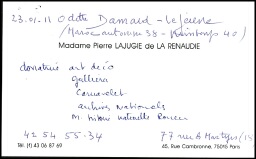 23.01.11 Odette Damaud-Lejeune
(Maroc automne 38 - Printemps 40)
Madame Pierre LAJUGIE de LA RENAUDIE
donatrice art déco
Galliera
Carnavalet
archives Nationales
M. histoire naturelle Rouen
42 54 55-34
77 rue Martyrs (18
Tél. (1) 43 06 87 69
45, Rue Cambronne, 75015 Paris